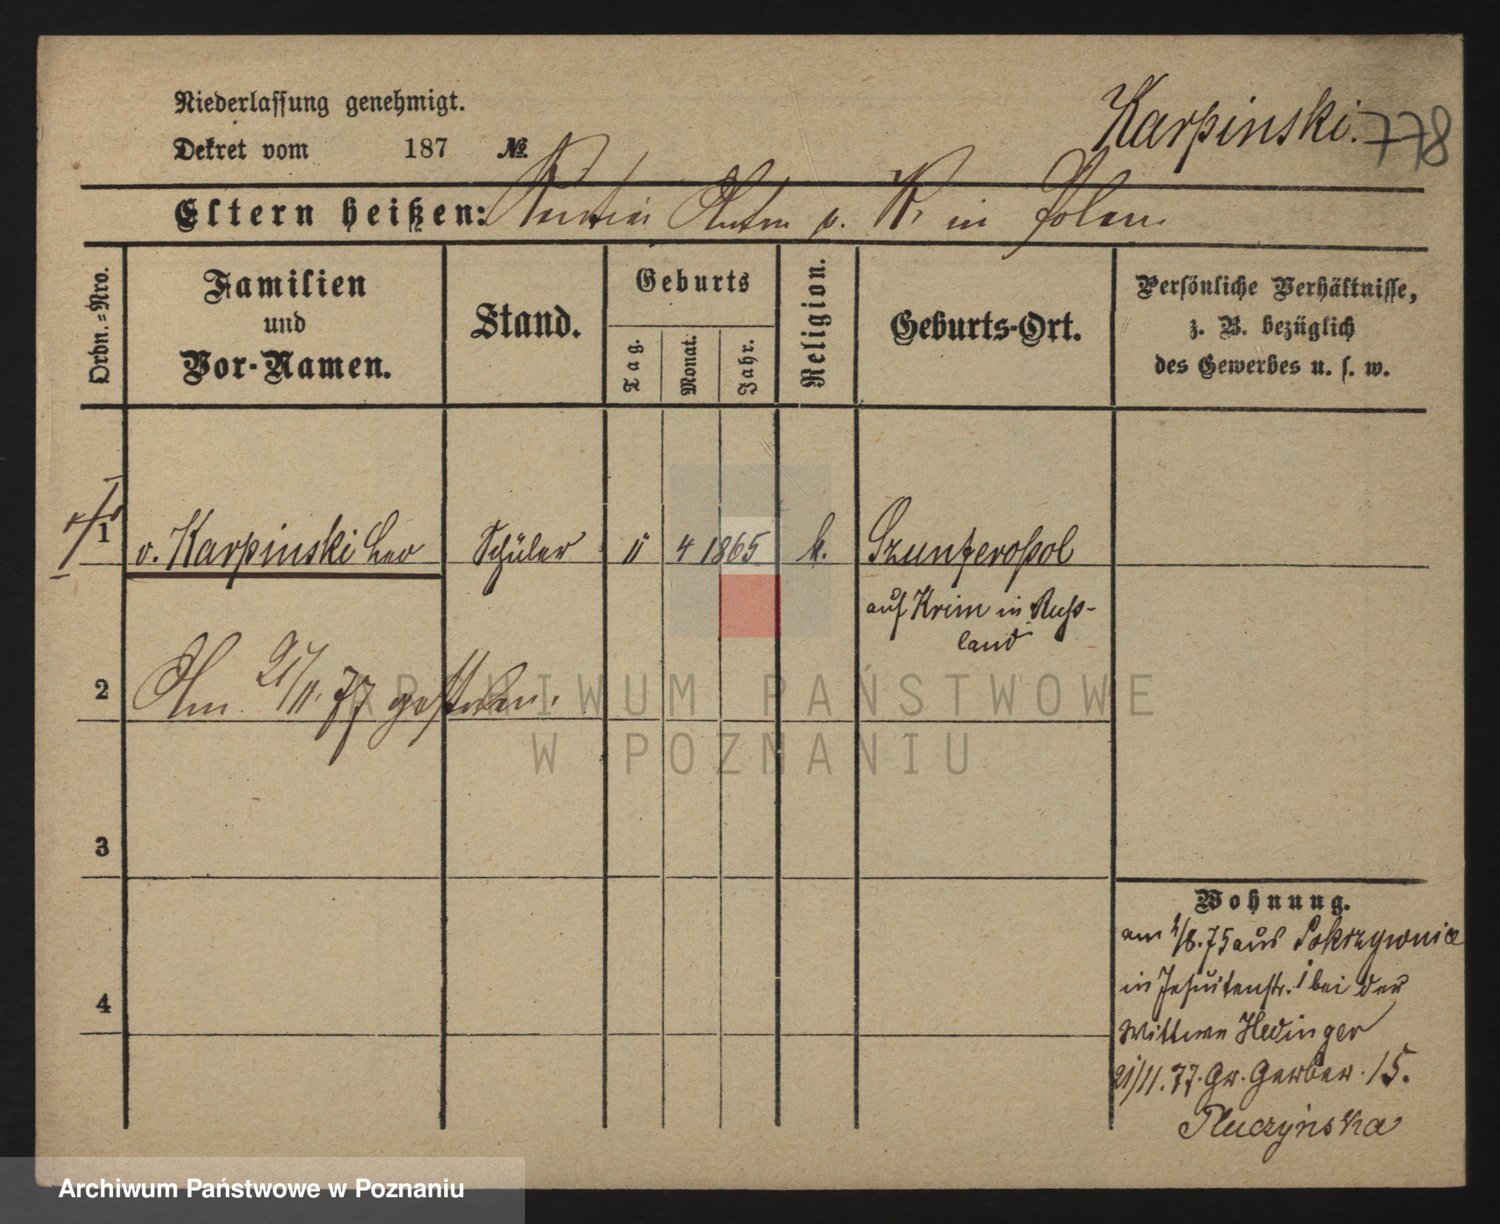 Niederlassung genehmigt.
Karpinski. 778
Dekret vom 187 №
Eltern heißen: Rentier Anton v. K. in Polen.
Ordn.=Nro.
Familien
und
Vor-Namen.
Stand.
Geburts
Tag.
Monat.
Jahr.
Religion.
Geburts-Ort.
Persönliche Verhältnisse,
z. B. bezüglich
des Gewerbes u. s. w.
1 v. Karpinski Leo Schüler 11 4 1865 k. Szunferopol
auf Krim in Russ-
land
2 Am 21/11. 77 gestorben.
3
4
Wohnung.
am 1/8. 75 aus Pokrzywnice
in Jesuitenstr. 1 bei der
Wittwe Hedinger
21/11. 77. Gr. Gerber. 15.
Pluczyńska
ARCHIWUM PAŃSTWOWE
W POZNANIU
Archiwum Państwowe w Poznaniu